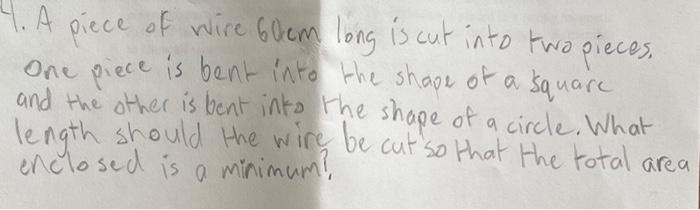 4. A piece of wire 60cm long is cut into two pieces.
One piece is bent into the shape of a square
and the other is bent into the shape of a circle. What
length should the wire be cut so that the total area
enclosed is a minimum?